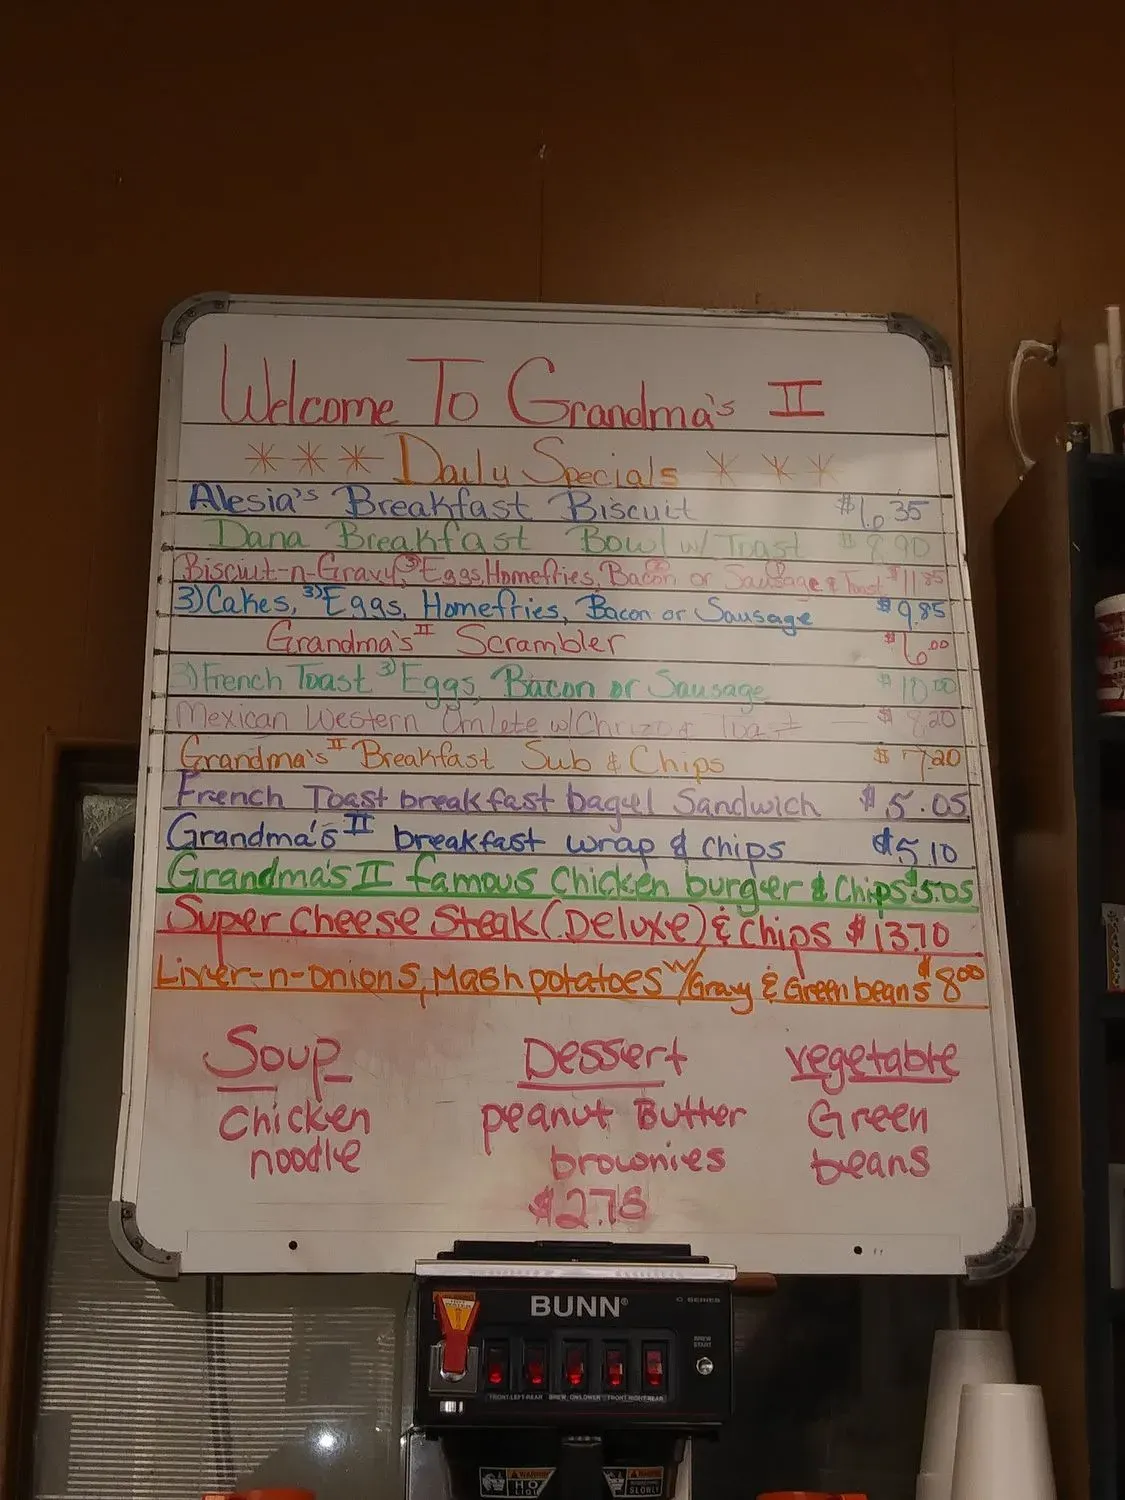 Welcome To Grandma's II
*** Daily Specials ***
Alesia's Breakfast Biscuit $6.35
Dana Breakfast Bowl w/ Toast $8.90
Biscuit-n-Gravy, 3) Eggs, Homefries, Bacon or Sausage & Toast $11.85
3) Cakes, 3) Eggs, Homefries, Bacon or Sausage $9.85
Grandma's II Scrambler $6.00
3) French Toast 3) Eggs, Bacon or Sausage $10.00
Mexican Western Omlete w/ Chrizo & Toast — $8.20
Grandma's II Breakfast Sub & Chips $7.20
French Toast breakfast bagel Sandwich $5.05
Grandma's II breakfast wrap & chips $5.10
Grandma's II famous Chicken burger & Chips $5.05
Super Cheese Steak (Deluxe) & Chips $13.70
Liver-n-onions, Mash potatoes w/ Gravy & Green beans $8.00
Soup Dessert vegetable
Chicken peanut Butter Green
noodle brownies beans
$2.75
BUNN®
SERIES
BREW
START
WARNING